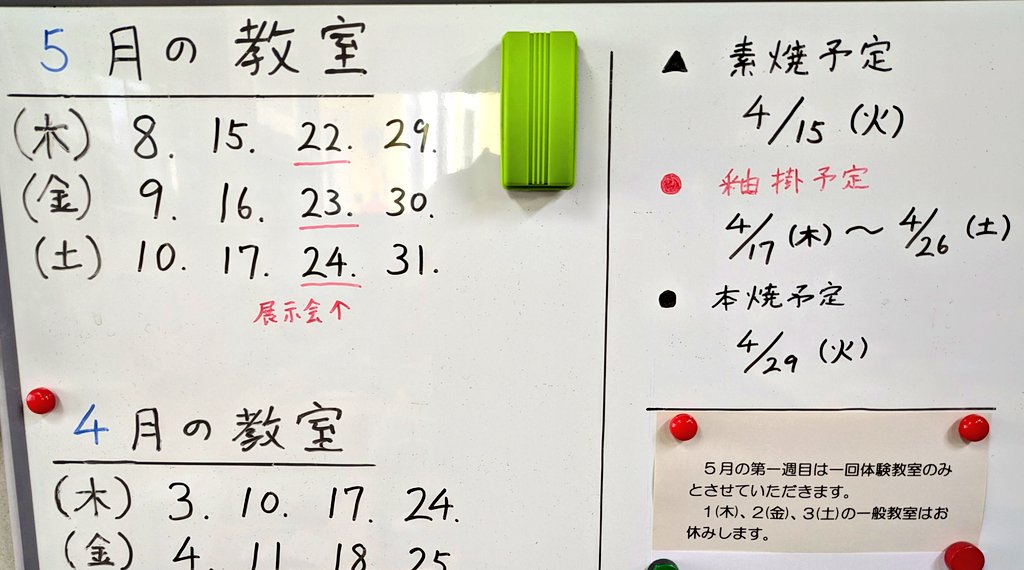 5月の教室
(木) 8. 15. 22. 29.
(金) 9. 16. 23. 30.
(土) 10. 17. 24. 31.
展示会↑
4月の教室
(木) 3. 10. 17. 24.
(金) 4. 11. 18. 25.
▲ 素焼予定
4/15 (火)
● 釉掛予定
4/17 (木) 〜 4/26 (土)
● 本焼予定
4/29 (火)
5月の第一週目は一回体験教室のみ
とさせていただきます。
1(木)、2(金)、3(土)の一般教室はお
休みします。